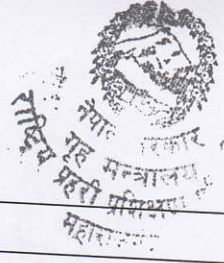 नेपाल सरकार
गृह मन्त्रालय
राष्ट्रिय प्रहरी प्रशिक्षण